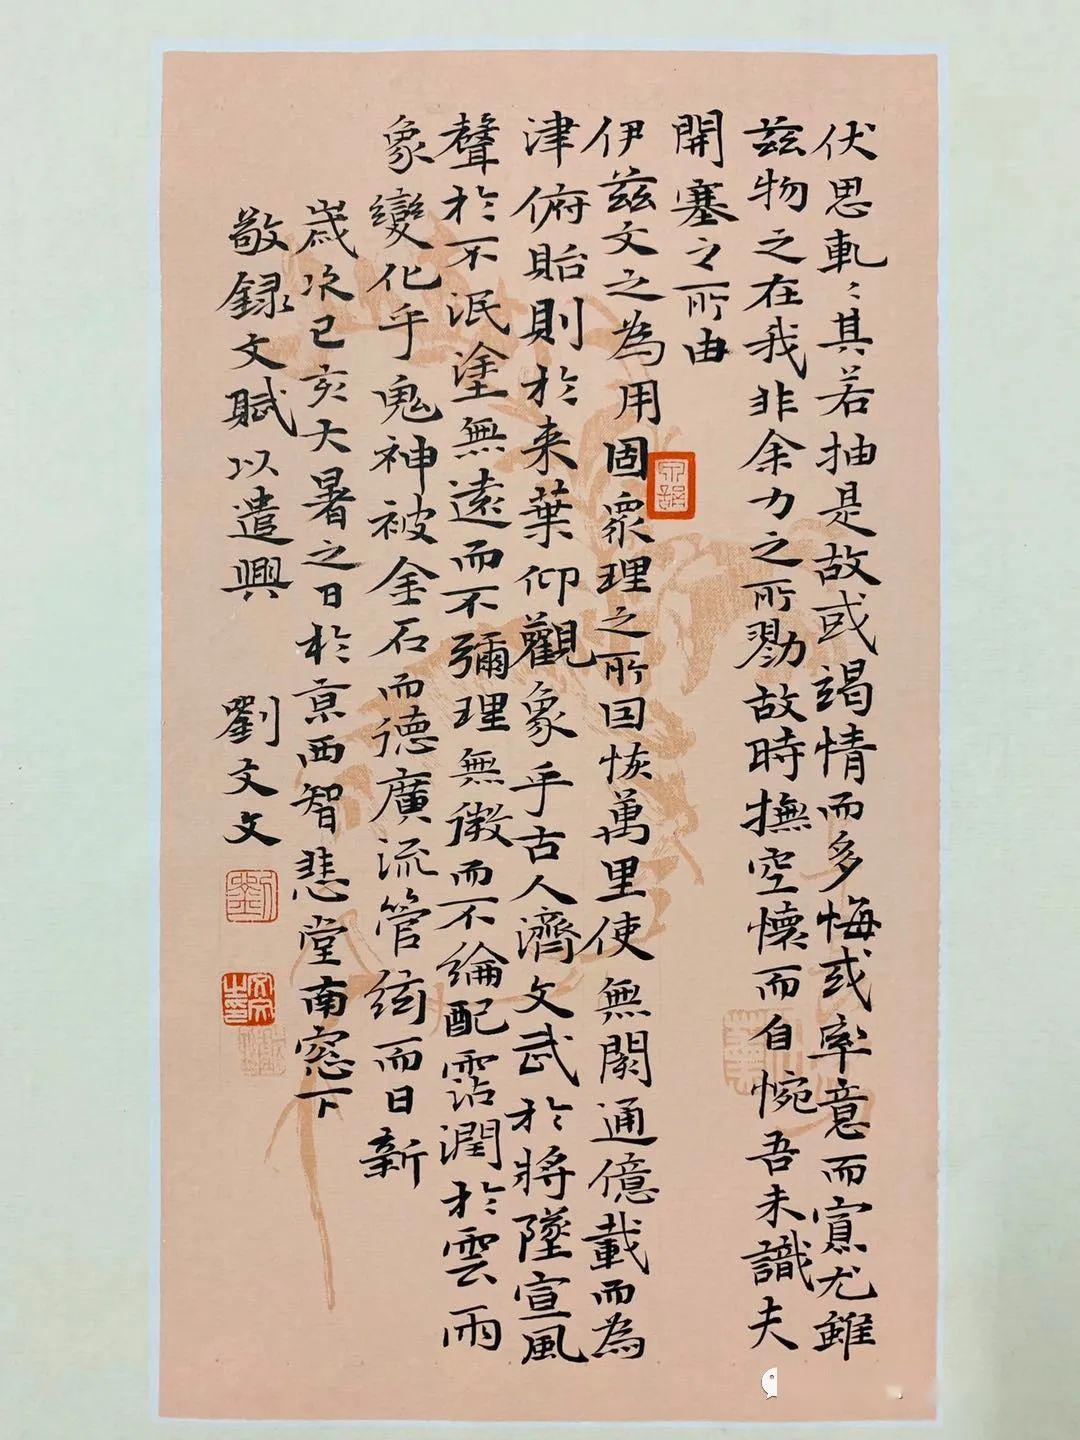 伏思軋〻其若抽是故或竭情而多悔或率意而寡尤雖
兹物之在我非余力之所勠故時撫空懷而自惋吾未識夫
開塞之所由
伊兹文之為用固衆理之所因恢萬里使無閡通億載而為
津俯貽則於来葉仰觀象乎古人濟文武於將墜宣風
聲於不泯塗無遠而不彌理無微而不綸配霑潤於雲雨
象變化乎鬼神被金石而德廣流管絃而日新
歲次己亥大暑之日於京西智悲堂南窓下
敬録文賦以遣興 劉文文
劉